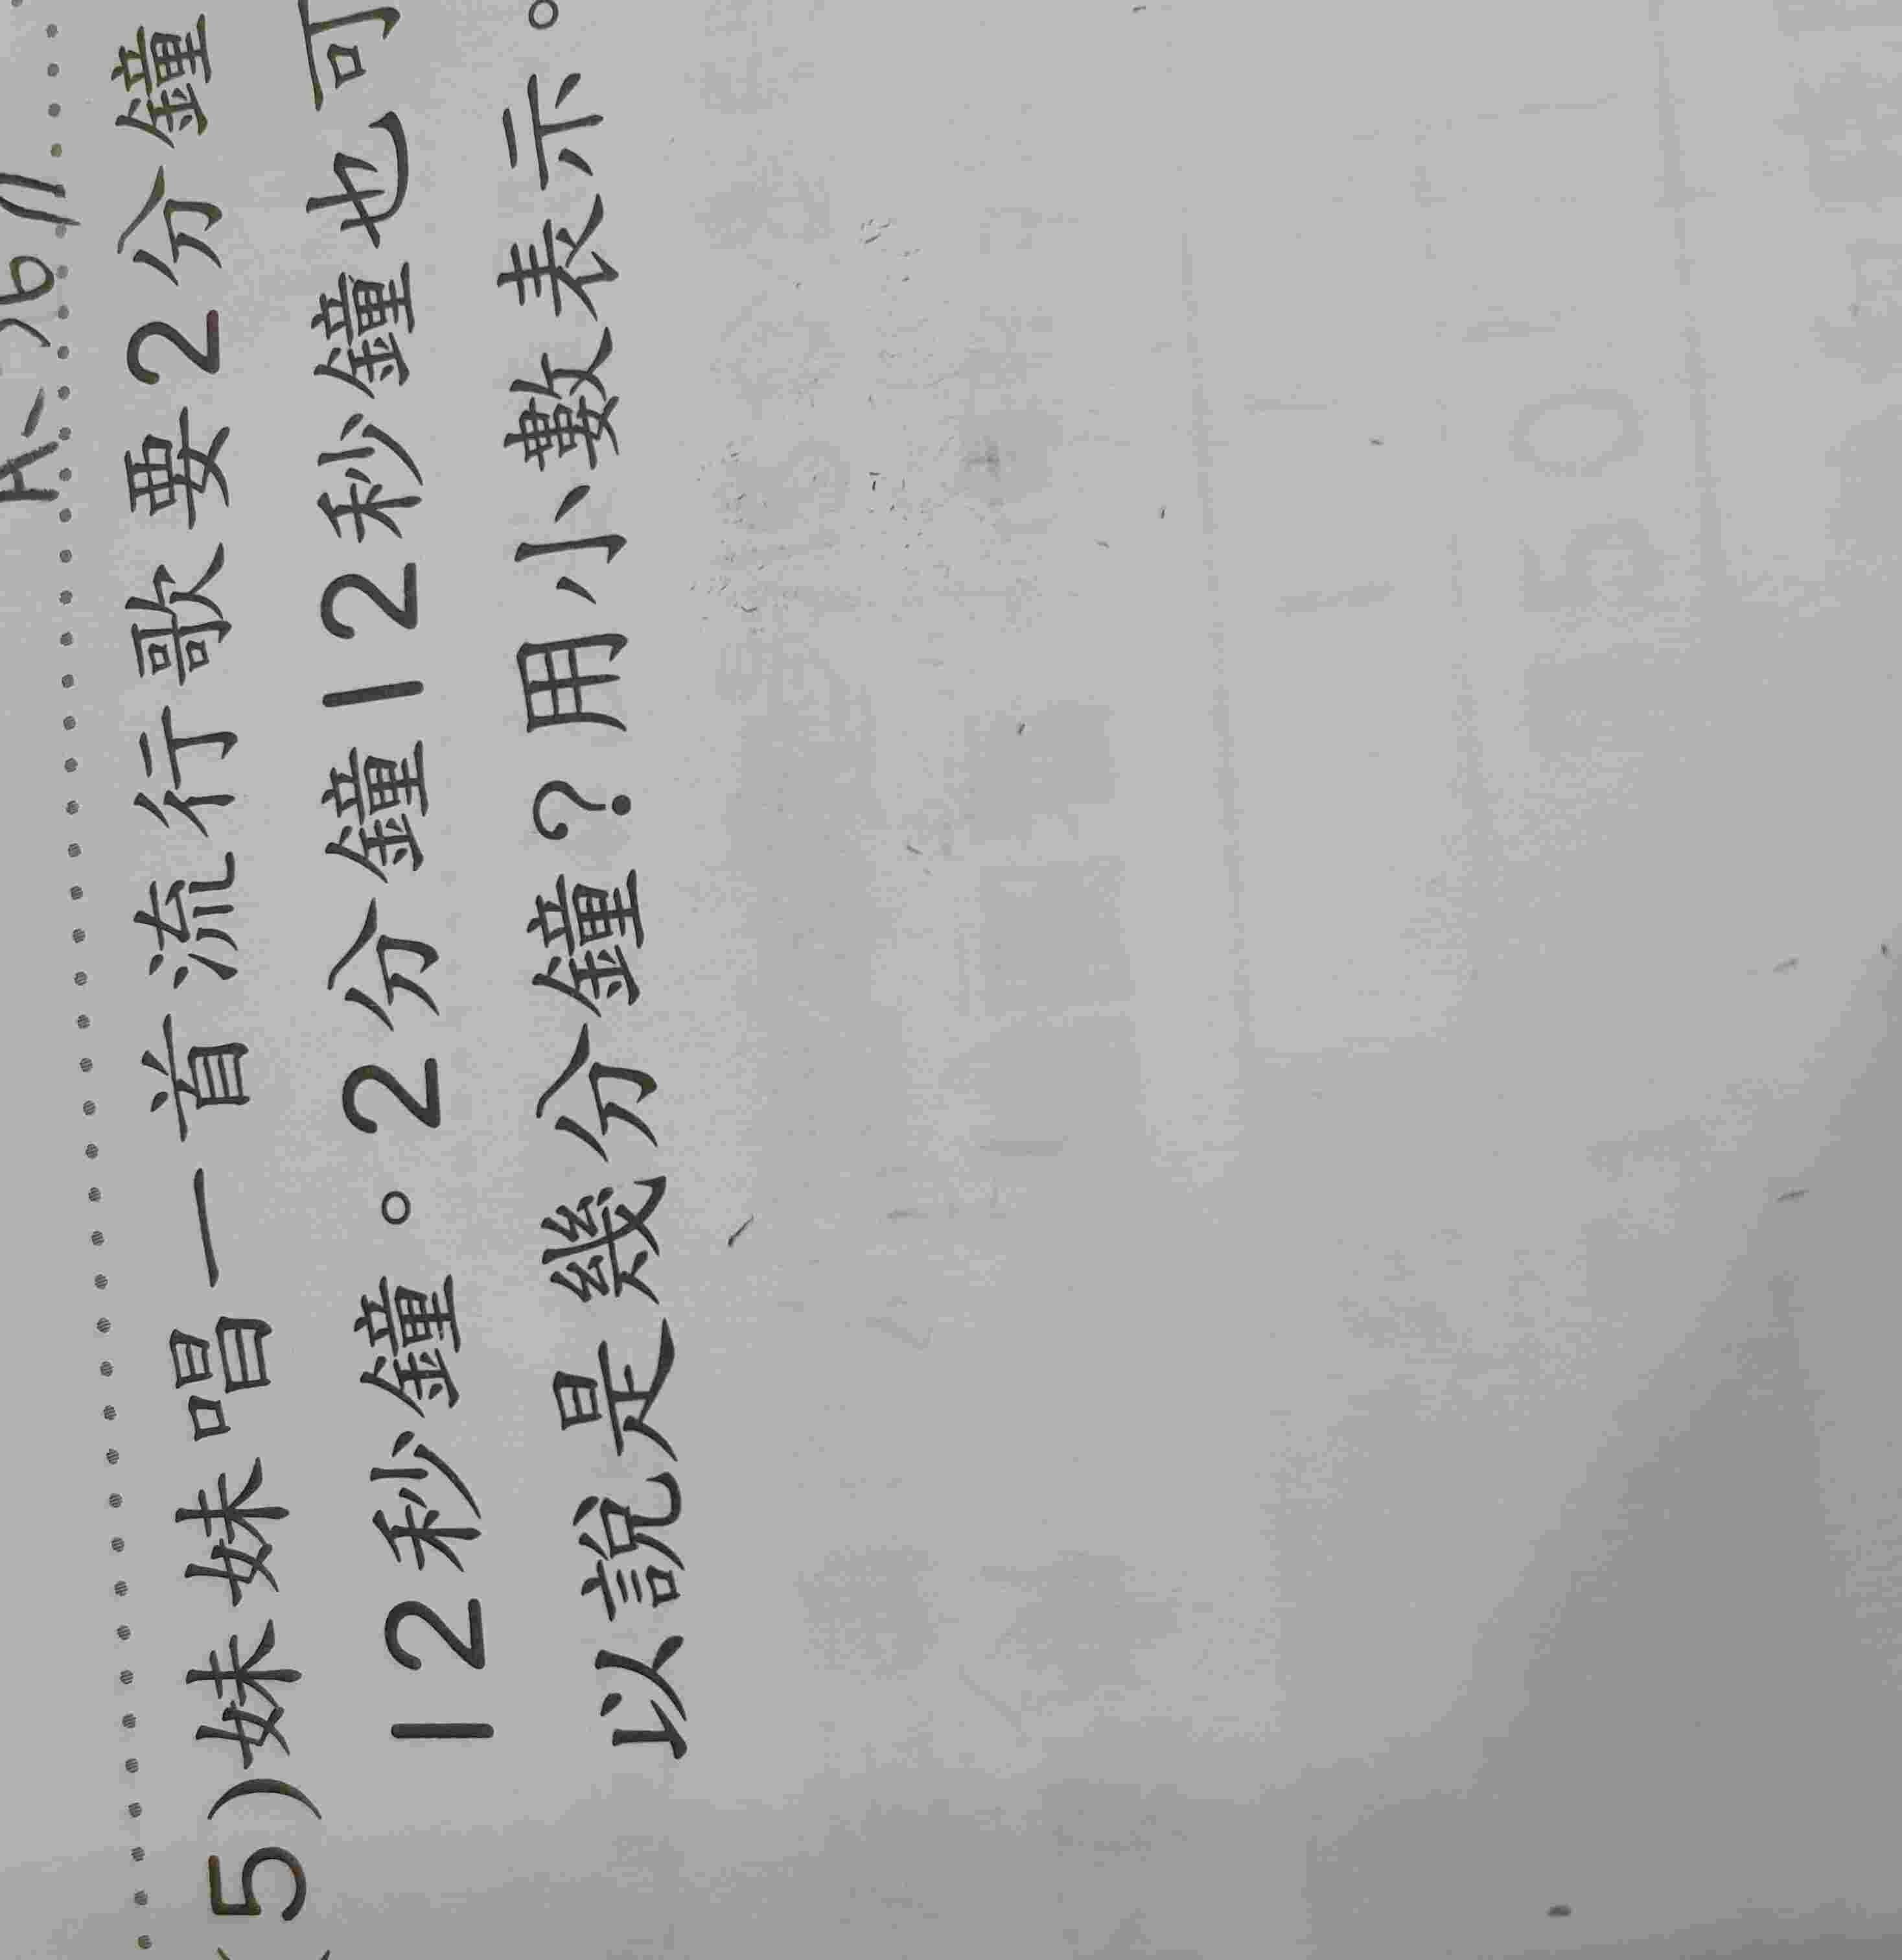 (5)妹妹唱一首流行歌要2分鐘
12秒鐘。2分鐘12秒鐘也可
以說是幾分鐘?用小數表示。